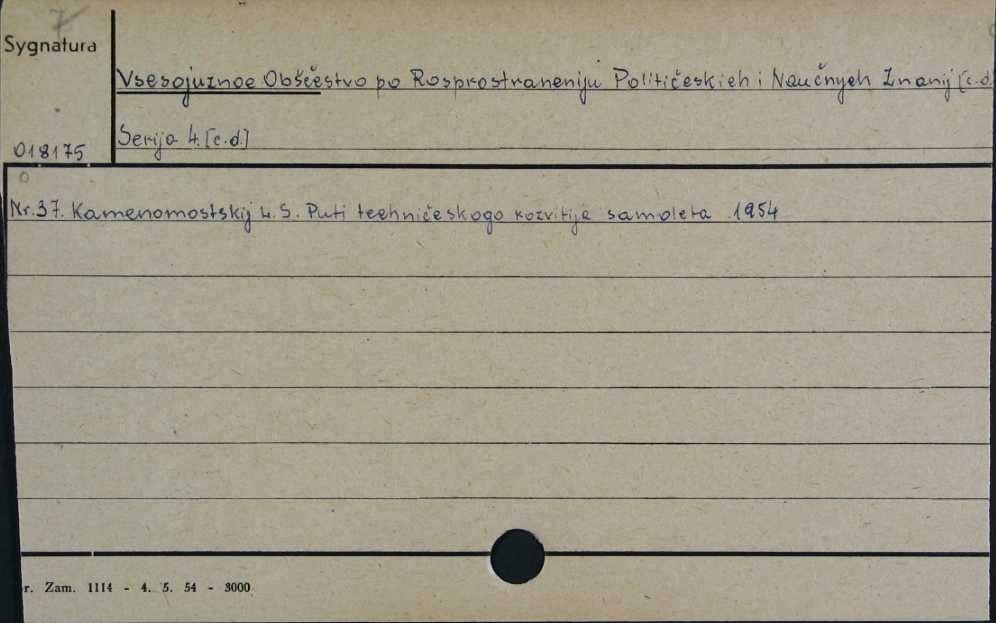 7
Sygnatura
Vsesojuznoe Obščestvo po Rosprostraneniju Političeskich i Naučnych Znanij [c.d.
Serija 4. [c.d.]
018175
Nr. 37. Kamenomostskij L. S. Puti techničeskogo rozvitija samoleta 1954
r. Zam. 1114 - 4. 5. 54 - 3000